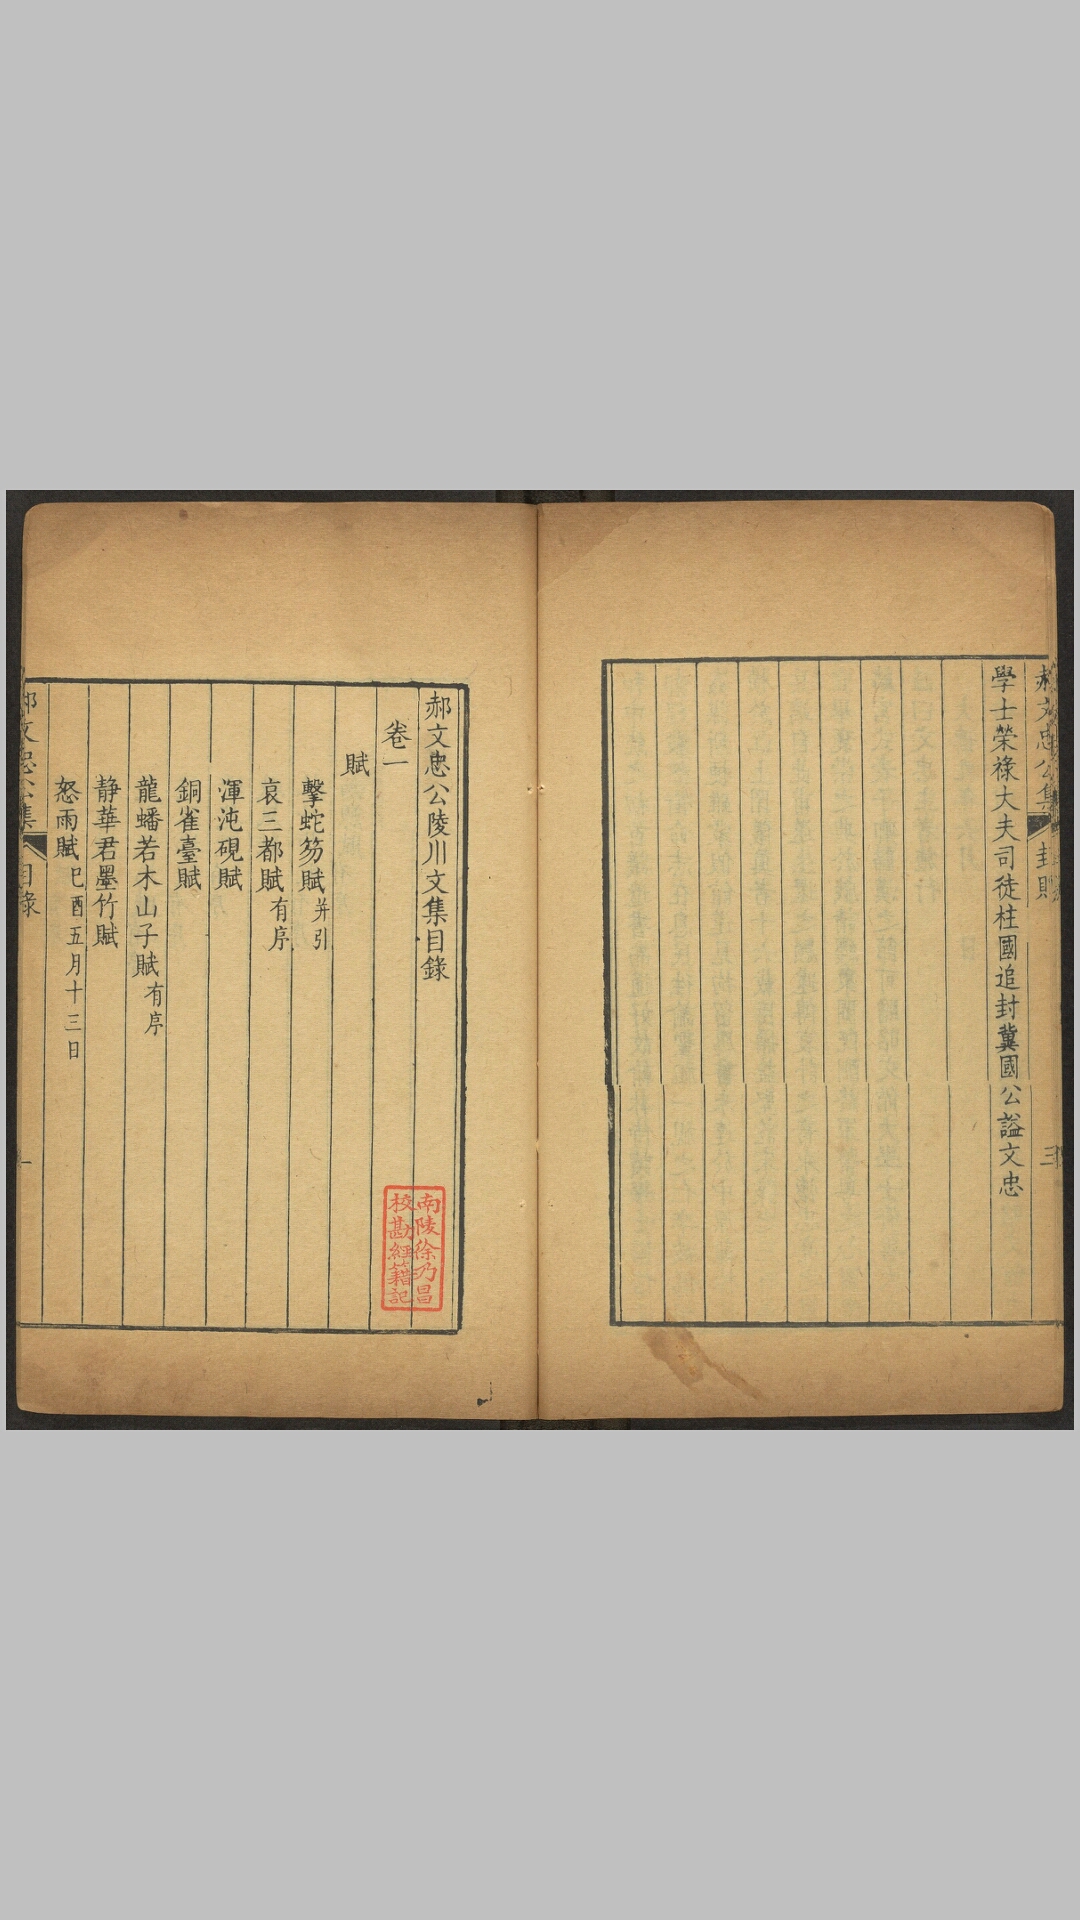 郝文忠公集
封贈
三
學士榮祿大夫司徒柱國追封冀國公謚文忠
郝文忠公陵川文集目錄
卷一
賦
擊蛇笏賦并引
哀三都賦有序
渾沌硯賦
銅雀臺賦
龍蟠若木山子賦有序
静華君墨竹賦
怒雨賦已酉五月十三日
郝文忠公集
目錄
一
南陵徐乃昌
校勘經籍記